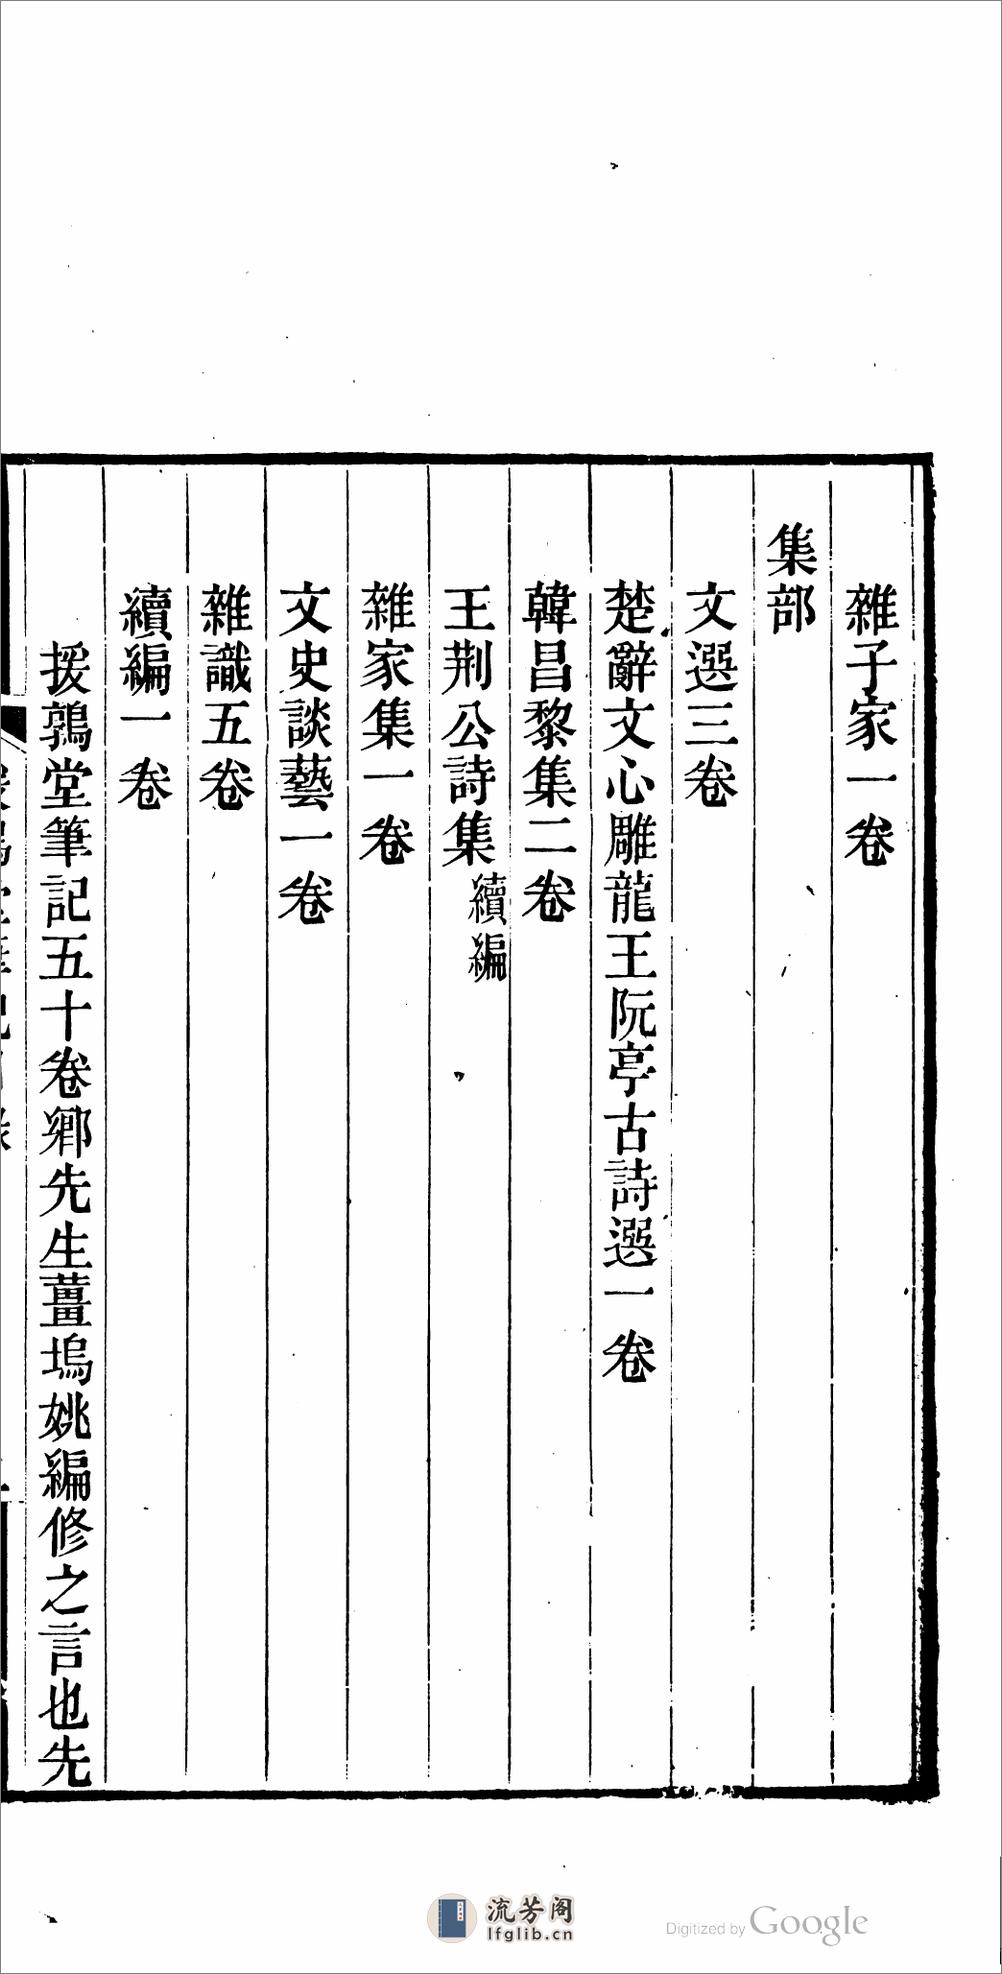 雜子家一卷
集部
文選三卷
楚辭文心雕龍王阮亭古詩選一卷
韓昌黎集二卷
王荆公詩集續編
雜家集一卷
文史談藝一卷
雜識五卷
續編一卷
援鶉堂筆記五十卷鄉先生薑塢姚編修之言也先
流芳阁
lfglib.cn
Digitized by Google